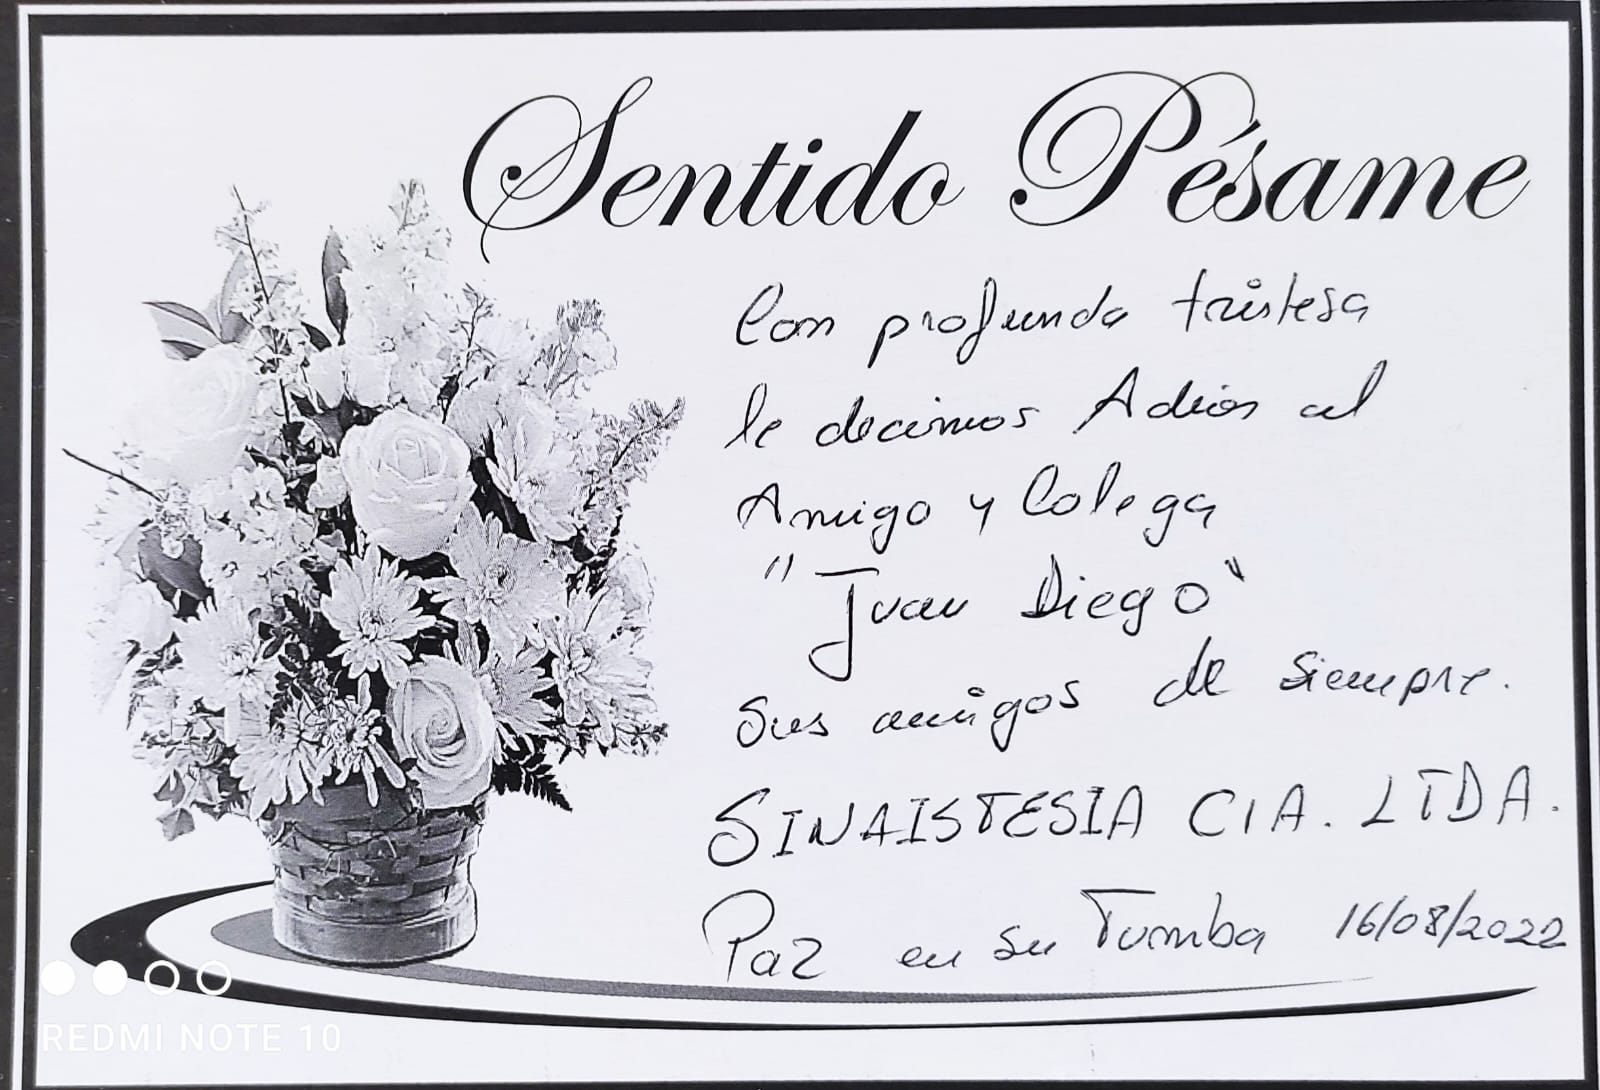 Sentido Pésame
Con profunda tristesa
le decimos Adios al
Amigo y Colega
"Juan Diego"
Sus amigos de siempre.
SINAISTESIA CIA. LTDA.
Paz en su Tumba 16/08/2022
REDMI NOTE 10